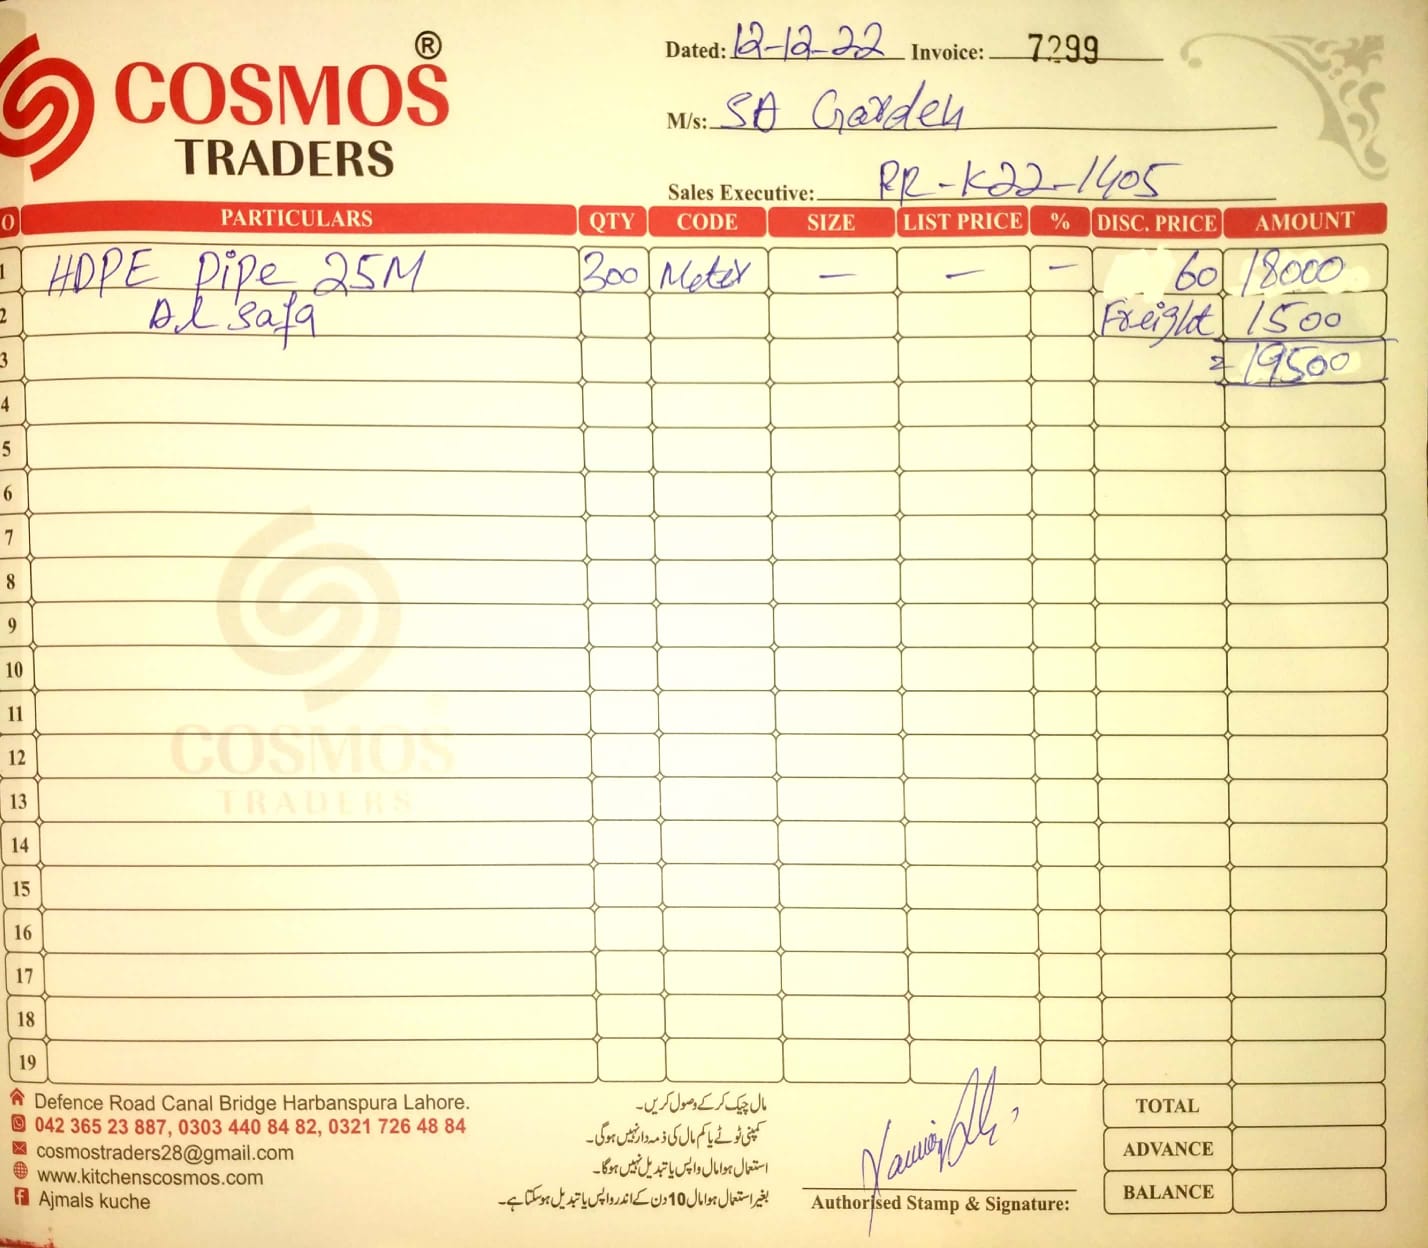 COSMOS ®
TRADERS
Dated: 12-12-22 Invoice: 7299
M/s: SA Garden
Sales Executive: RR-K22-1405
O PARTICULARS QTY CODE SIZE LIST PRICE % DISC. PRICE AMOUNT
1 HDPE Pipe 25M 300 Meter — — — 60 18000
2 Al Safa Freight 1500
3 = 19500
4
5
6
7
8
9
10
11
12
13
14
15
16
17
18
19
COSMOS
TRADERS
Defence Road Canal Bridge Harbanspura Lahore.
042 365 23 887, 0303 440 84 82, 0321 726 48 84
cosmostraders28@gmail.com
www.kitchenscosmos.com
Ajmals kuche
مال چیک کر کے وصول کریں۔
کمپنی ٹوٹے یا کم مال کی ذمہ دار نہیں ہوگی۔
استعمال ہوا مال واپس یا تبدیل نہیں ہوگا۔
بغیر استعمال ہوا مال 10 دن کے اندر واپس یا تبدیل ہوسکتا ہے۔
Authorised Stamp & Signature:
TOTAL
ADVANCE
BALANCE